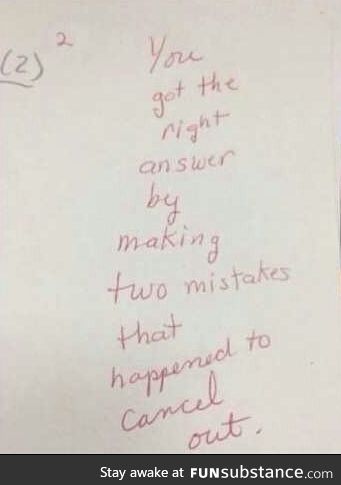 (2)²
You
got the
right
answer
by
making
two mistakes
that
happened to
cancel
out.
Stay awake at FUNsubstance.com